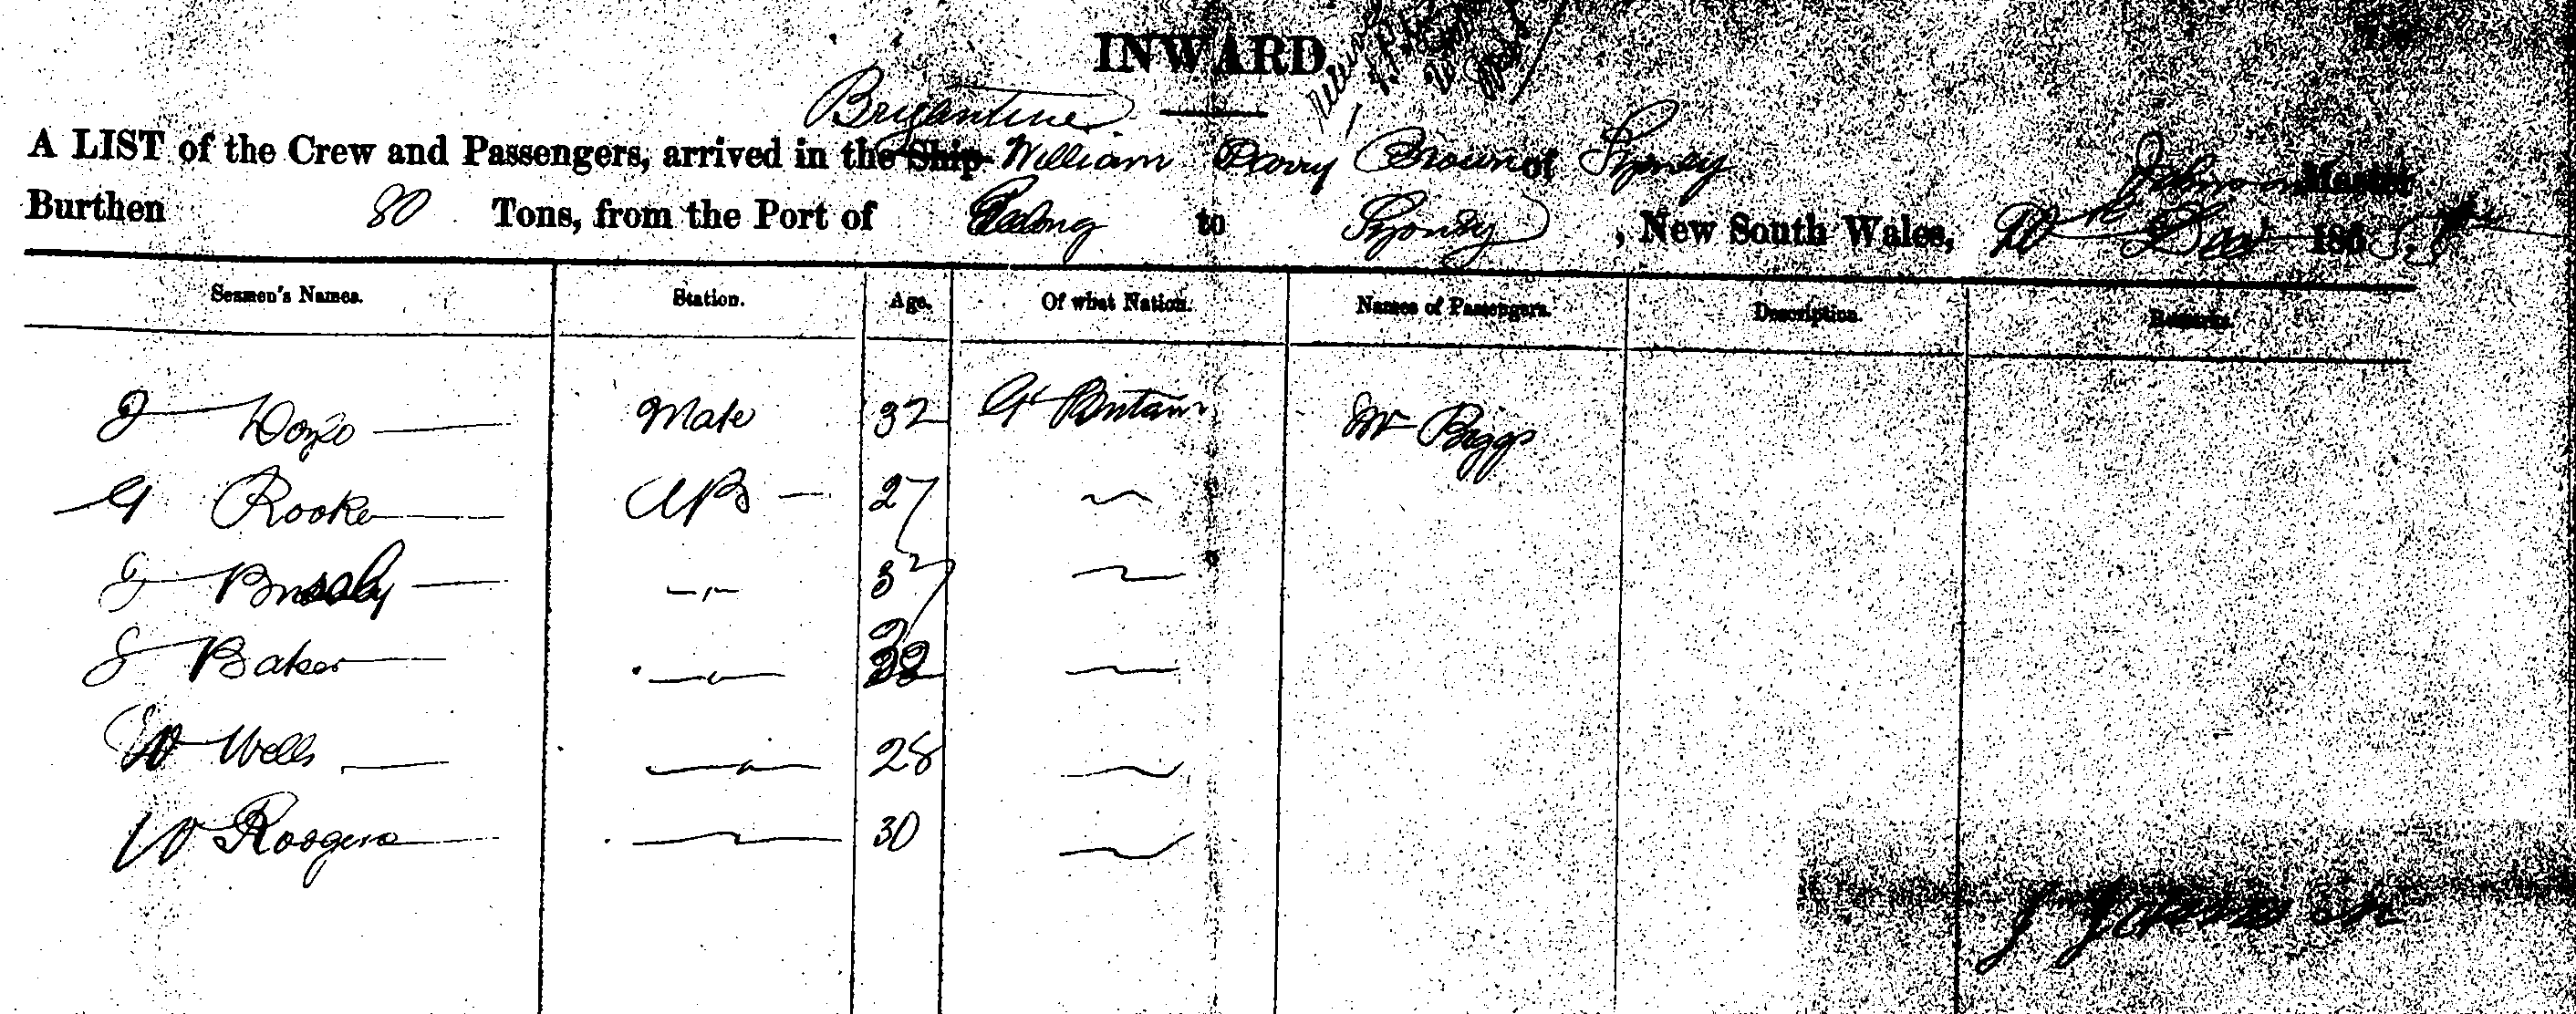 INWARD
Brigantine
A LIST of the Crew and Passengers, arrived in the Ship William Parry Brown of Sydney Johnson Master
Burthen 80 Tons, from the Port of Geelong to Sydney, New South Wales, 186
Seamen's Names. Station. Age. Of what Nation. Names of Passengers. Description. Remarks.
J Mate 32 Gt Britain Mr Biggs
G Rooke AB 27
37
Baker
W Wells 28
W Roogers 30
J Johnson